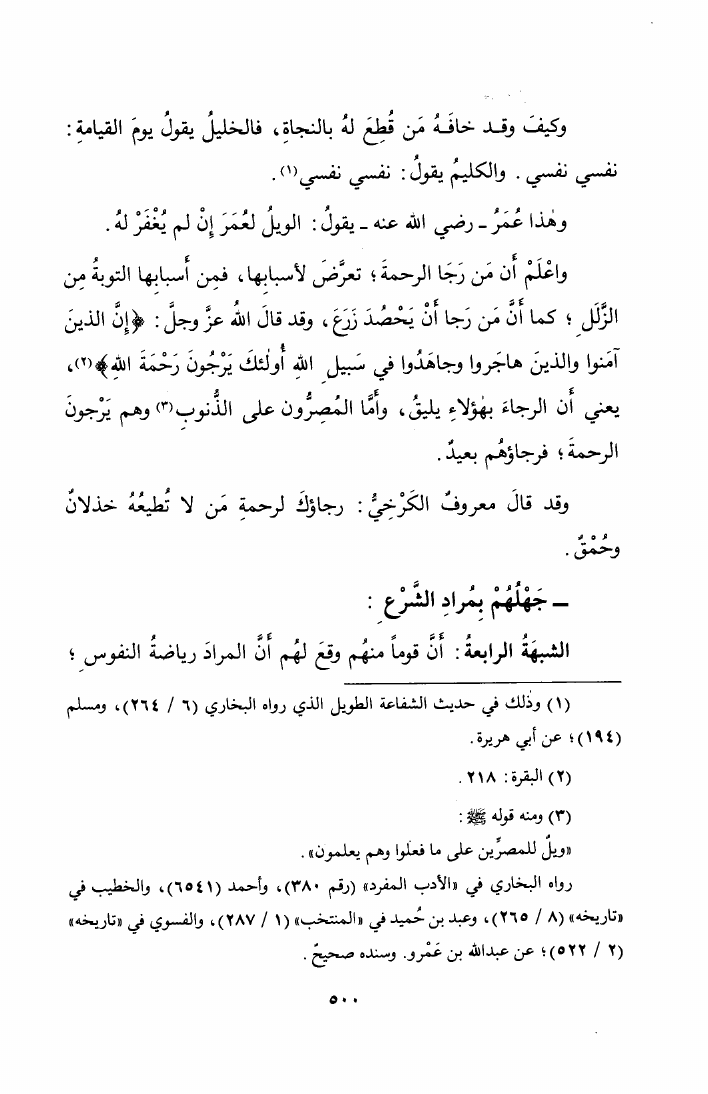 وكيفَ وقـد خافَـهُ مَن قُطِعَ لهُ بالنجاةِ، فالخليلُ يقولُ يومَ القيامةِ :
نفسي نفسي . والكليمُ يقولُ: نفسي نفسي(١).
وهٰذا عُمَرُ ـ رضي الله عنه ـ يقولُ: الويلُ لعُمَرَ إِنْ لم يُغْفَرْ لهُ.
واعْلَمْ أَن مَن رَجَا الرحمةَ؛ تعرَّضَ لأسبابِها، فمِن أَسبابِها التوبةُ مِن
الزَّلَلِ؛ كما أَنَّ مَن رَجا أَنْ يَحْصُدَ زَرَعَ، وقد قالَ اللهُ عزَّ وجلَّ: ﴿إِنَّ الذينَ
آمَنوا والذينَ هاجَروا وجاهَدُوا في سَبيلِ اللهِ أُولٰئكَ يَرْجُونَ رَحْمَةَ اللهِ﴾(٢)،
يعني أَن الرجاءَ بهٰؤلاءِ يليقُ، وأَمَّا المُصِرُّون على الذُّنوبِ(٣) وهم يَرْجونَ
الرحمةَ؛ فرجاؤهُم بعيدٌ.
وقد قالَ معروفٌ الكَرْخِيُّ: رجاؤكَ لرحمةِ مَن لا تُطيعُهُ خذلانٌ
وحُمْقٌ.
ـ جَهْلُهُمْ بِمُرادِ الشَّرْعِ :
الشبهَةُ الرابعةُ: أَنَّ قوماً منهُم وقعَ لهُم أَنَّ المرادَ رياضةُ النفوسِ؛
(١) وذٰلك في حديث الشفاعة الطويل الذي رواه البخاري (٦ / ٢٦٤)، ومسلم
(١٩٤)؛ عن أبي هريرة.
(٢) البقرة: ٢١٨.
(٣) ومنه قوله ﷺ:
«ويلٌ للمصرِّين على ما فعلوا وهم يعلمون».
رواه البخاري في «الأدب المفرد» (رقم ٣٨٠)، وأحمد (٦٥٤١)، والخطيب في
«تاريخه» (٨ / ٢٦٥)، وعبد بن حُميد في «المنتخب» (١ / ٢٨٧)، والفسوي في «تاريخه»
(٢ / ٥٢٢)؛ عن عبدالله بن عَمْرو. وسنده صحيحٌ.
٥٠٠